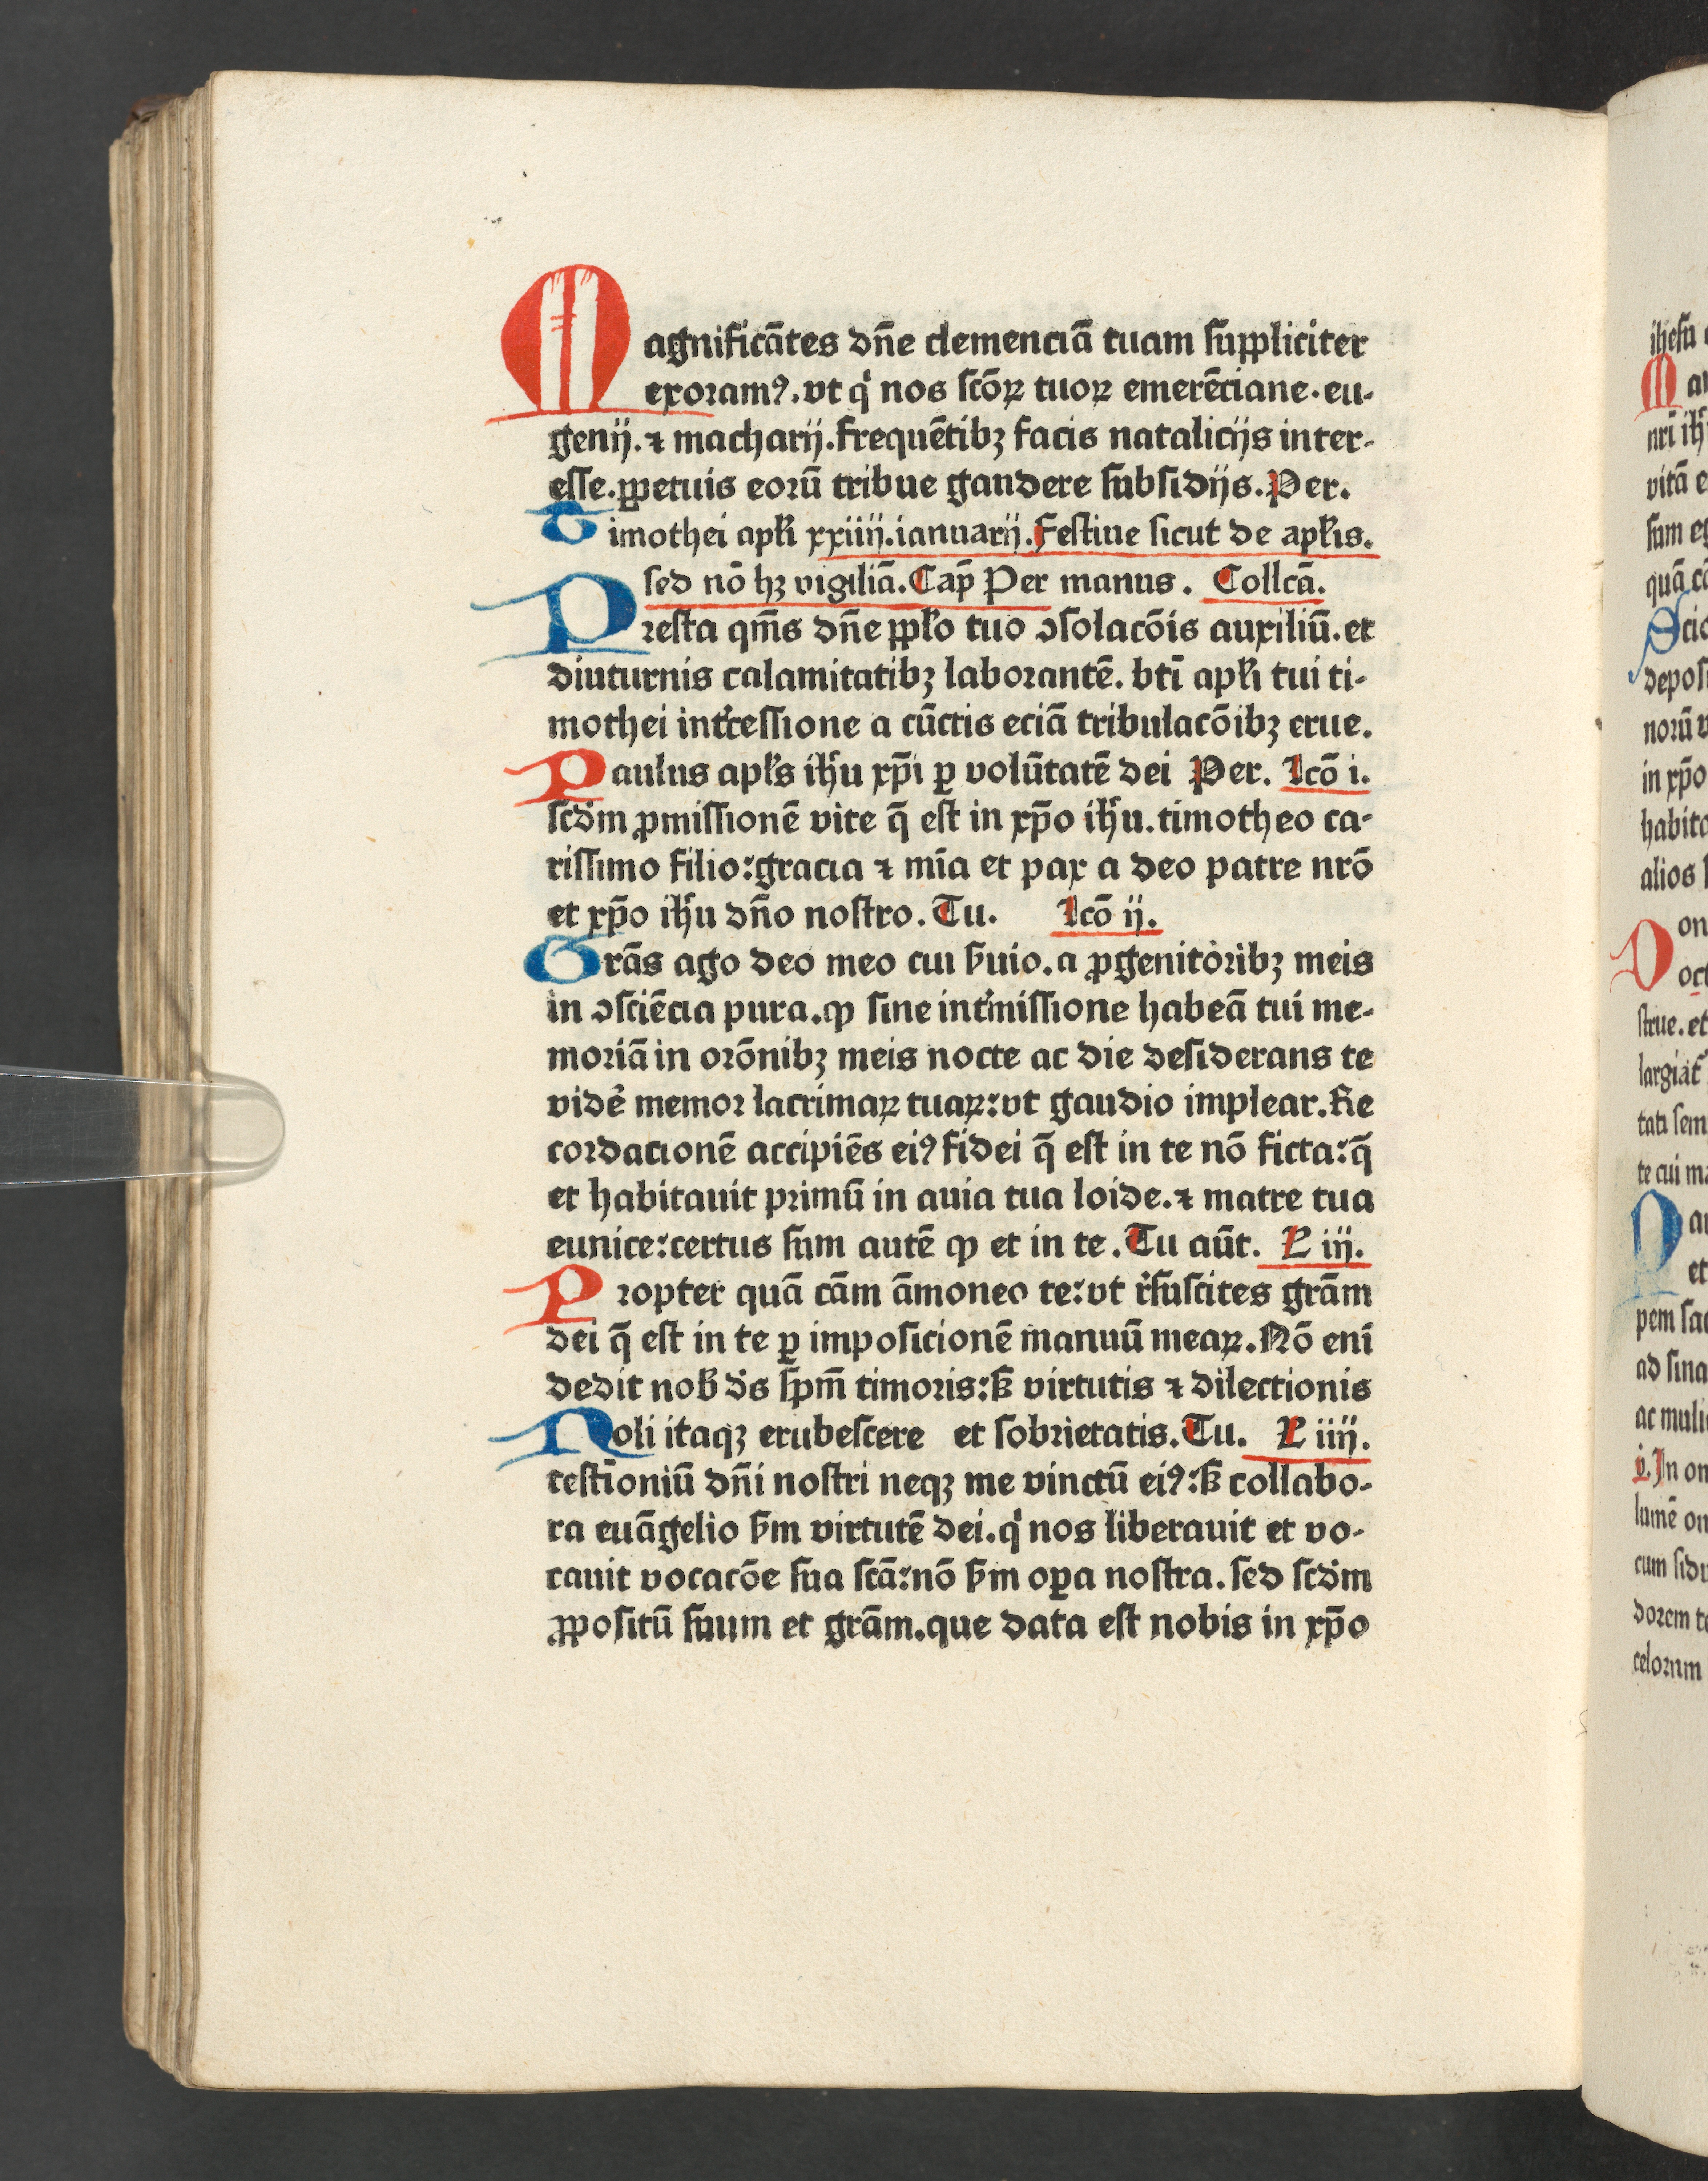 Magnificātes dn̄e clemenciā tuam suppliciter
exoramꝰ. vt qͥ nos scōꝝ tuoꝝ emerēciane. eu-
genij. ⁊ macharij. frequētibꝫ facis natalicijs inter-
esse. ꝑpetuis eorū tribue gandere subsidijs. Per.
Timothei apl̄i xxiiij. ianuarij. Festiue sicut de apl̄is.
sed nō hꝫ vigiliā. Cap̄ Per manus. Collcā.
Presta qm̄s dn̄e ppl̄o tuo ꝯsolacōis auxiliū. et
diuturnis calamitatibꝫ laborantē. btī apl̄i tui ti-
mothei int̉cessione a cūctis eciā tribulacōibꝫ erue.
Paulus apl̄s ih̄u xp̄i ꝑ volūtatē dei Per. Lcō i.
scd̄m ꝓmissionē vite q̄ est in xp̄o ih̄u. timotheo ca-
rissimo filio: gracia ⁊ mīa et pax a deo patre nrō
et xp̄o ih̄u dn̄o nostro. Tu. Lcō ij.
Grās ago deo meo cui ẜuio. a ꝓgenitoribꝫ meis
in ꝯsciēcia pura. ꝙ sine int̉missione habeā tui me-
moriā in orōnibꝫ meis nocte ac die desiderans te
vidē̉ memor lacrimaꝝ tuaꝝ: vt gaudio implear. Re
cordacionē accipiēs eiꝰ fidei q̄ est in te nō ficta: q̄
et habitauit primū in auia tua loide. ⁊ matre tua
eunice: certus sum autē ꝙ et in te. Tu aūt. L iij.
Propter quā cām āmoneo te: vt r̉suscites grām
dei q̄ est in te ꝑ imposicionē manuū meaꝝ. Nō enī
dedit nob̄ ds̄ spm̄ timoris: ẜ virtutis ⁊ dilectionis
Noli itaqꝫ erubescere et sobrietatis. Tu. L iiij.
testīoniū dn̄i nostri neqꝫ me vinctū eiꝰ: ẜ collabo-
ra euāgelio ẜm virtutē dei. qͥ nos liberauit et vo-
cauit vocacōe sua scā: nō ẜm oꝑa nostra. sed scd̄m
ꝓpositū suum et grām. que data est nobis in xp̄o